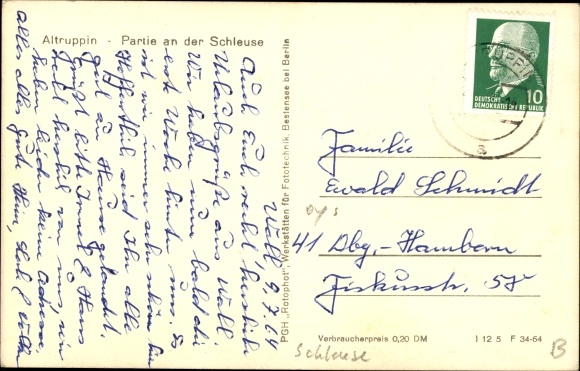 Altruppin - Partie an der Schleuse
Wall, 9.7.64
Auch Euch recht herzliche
Urlaubsgrüße aus Wall.
Wir haben nun bald die
erste Woche hinter uns. Es
ist wie immer sehr schön hier
Hoffentlich seid Ihr alle
gut zu Hause gelandet.
Grüßt bitte Irmel & Hans
recht herzlich von uns, wir
haben leider keine Adresse
alles alles Gute Heinz,
PGH „Rotophot", Werkstätten für Fototechnik, Bestensee bei Berlin
DEUTSCHE
DEMOKRATISCHE REPUBLIK
10
a
Familie
Ewald Schmidt
41 Dbg.-Hamborn
Fiskusstr. 58
Verbraucherpreis 0,20 DM
1 12 5 F 34-64
Schleuse
B